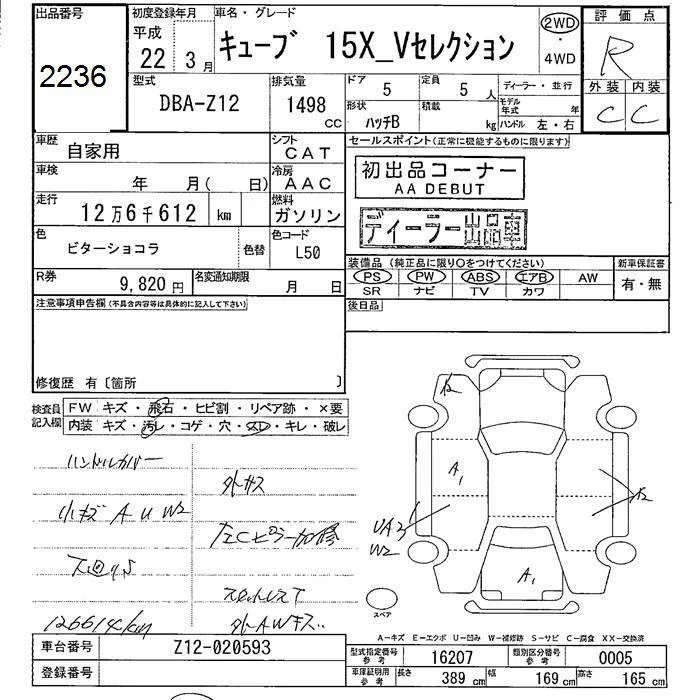 出品番号
2236
初度登録年月
平成
22 3月
車名・グレード
キューブ 15X_Vセレクション
2WD
・
4WD
評価点
R
外装 内装
C C
型式
DBA-Z12
排気量
1498
CC
ドア
5
定員
5 人
形状
ハッチB
積載
kg
ディーラー・並行
モデル
年式 年
ハンドル 左・右
車歴
自家用
シフト
CAT
車検
年 月( 日)
冷房
AAC
走行
12万6千612 km
燃料
ガソリン
色
ビターショコラ
色替
色コード
L50
R券
9,820円
名変通知期限
月 日
セールスポイント(正常に機能するものに限ります)
初出品コーナー
AA DEBUT
ディーラー出品車
装備品 (純正品に限り○をつけてください)
PS PW ABS エアB AW
SR ナビ TV カワ
新車保証書
有・無
後日品
注意事項申告欄(不具合内容等は具体的に記入して下さい)
修復歴 有〔箇所 〕
検査員
記入欄
FW キズ・飛石・ヒビ割・リペア跡・×要
内装 キズ・汚レ・コゲ・穴・スレ・キレ・破レ
ハンドルカバー
小キズ A U W2
下廻りS
126614km
外キズ
左Cピラー加修
外AWキズ..
A1
UA3
W2
A1
スペア
A-キズ E-エクボ U-凹み W-補修跡 S-サビ C-腐食 XX-交換済
車台番号
Z12-020593
登録番号
型式指定番号
参考
16207
類別区分番号
参考
0005
車庫証明用
参考
長さ 389 cm 幅 169 cm 高さ 165 cm